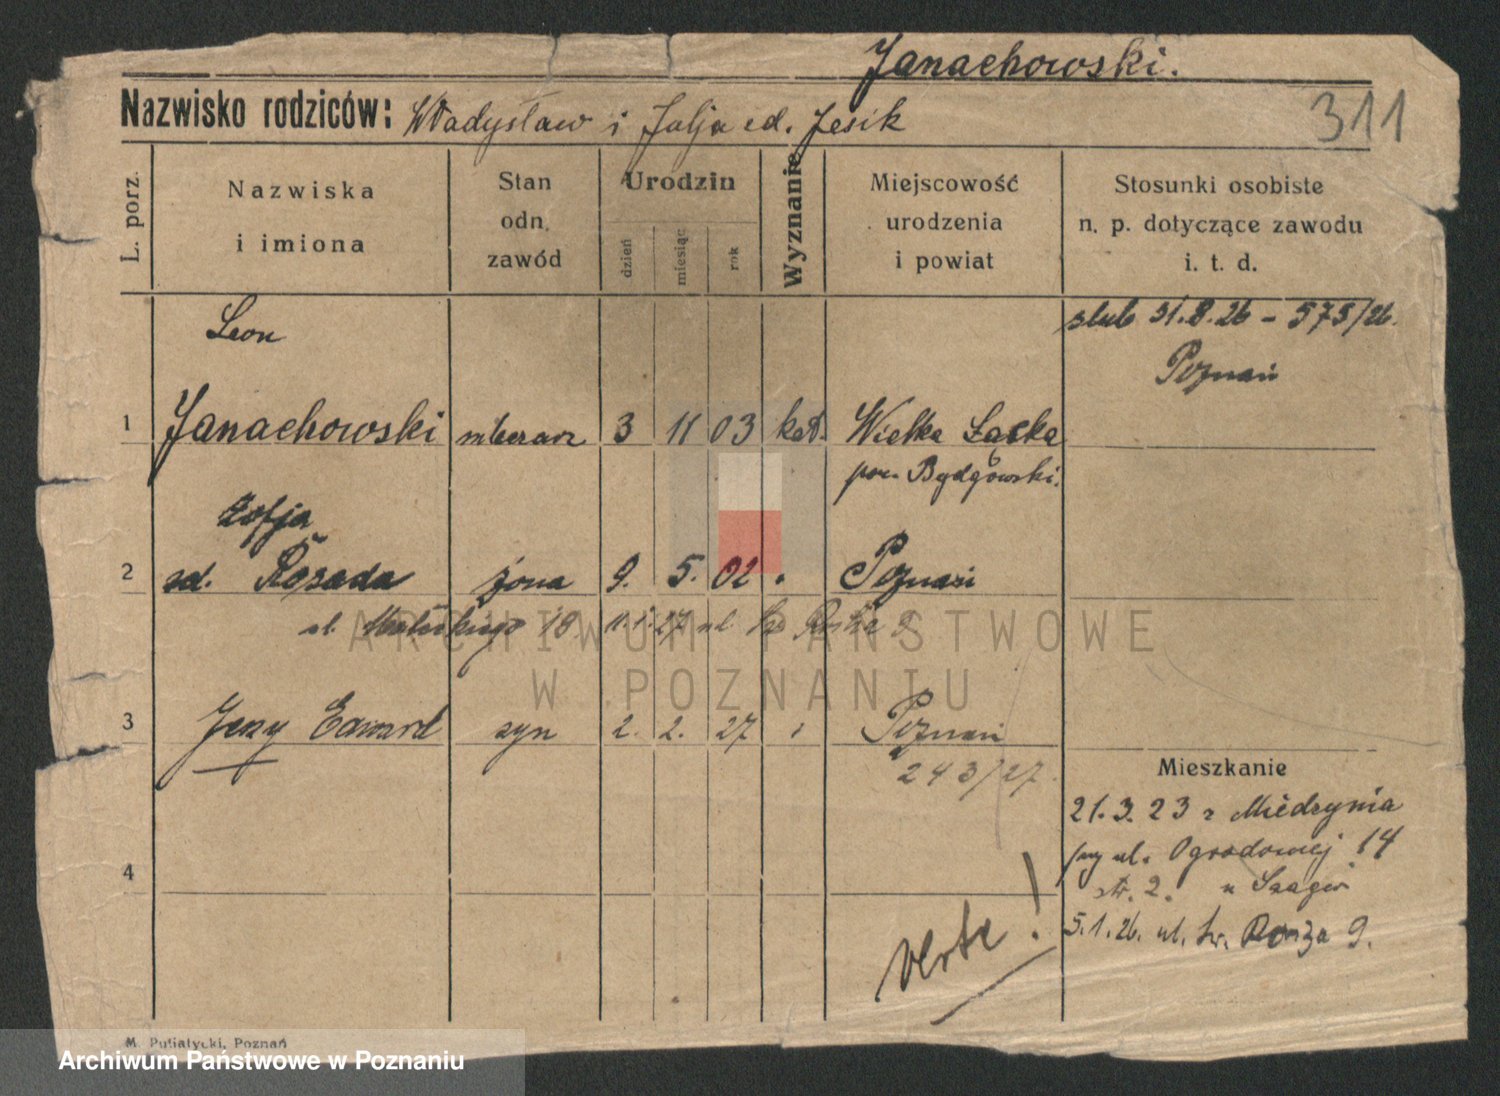 Janachowski.
Nazwisko rodziców: Władysław i Julja zd. Jesik
311
L. porz.
Nazwiska
i imiona
Stan
odn.
zawód
Urodzin
dzień
miesiąc
rok
Wyznanie
Miejscowość
urodzenia
i powiat
Stosunki osobiste
n. p. dotyczące zawodu
i. t. d.
Leon
ślub 31.8.26 - 575/26.
Poznań
1 Janachowski mleczarz 3 11 03 kat. Wielka Łącka
pow. Bydgowski.
Zofja
2 zd. Rożada żona 9. 5. 02 " Poznań
ul. 18 11.1.27 ul Św Rocha 9
ARCHIWUM PAŃSTWOWE
W POZNANIU
3 Jerzy Edward syn 2. 2. 27 " Poznań
243/27.
Mieszkanie
21.3.23 z Miedzynia
przy ul. Ogrodowej 14
str. 2. u
4
5.1.26. ul. Św. 9.
Verte!
M. Putiatycki, Poznań
Archiwum Państwowe w Poznaniu